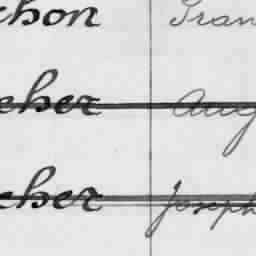 chon Fran
cher Aug
cher Joseph